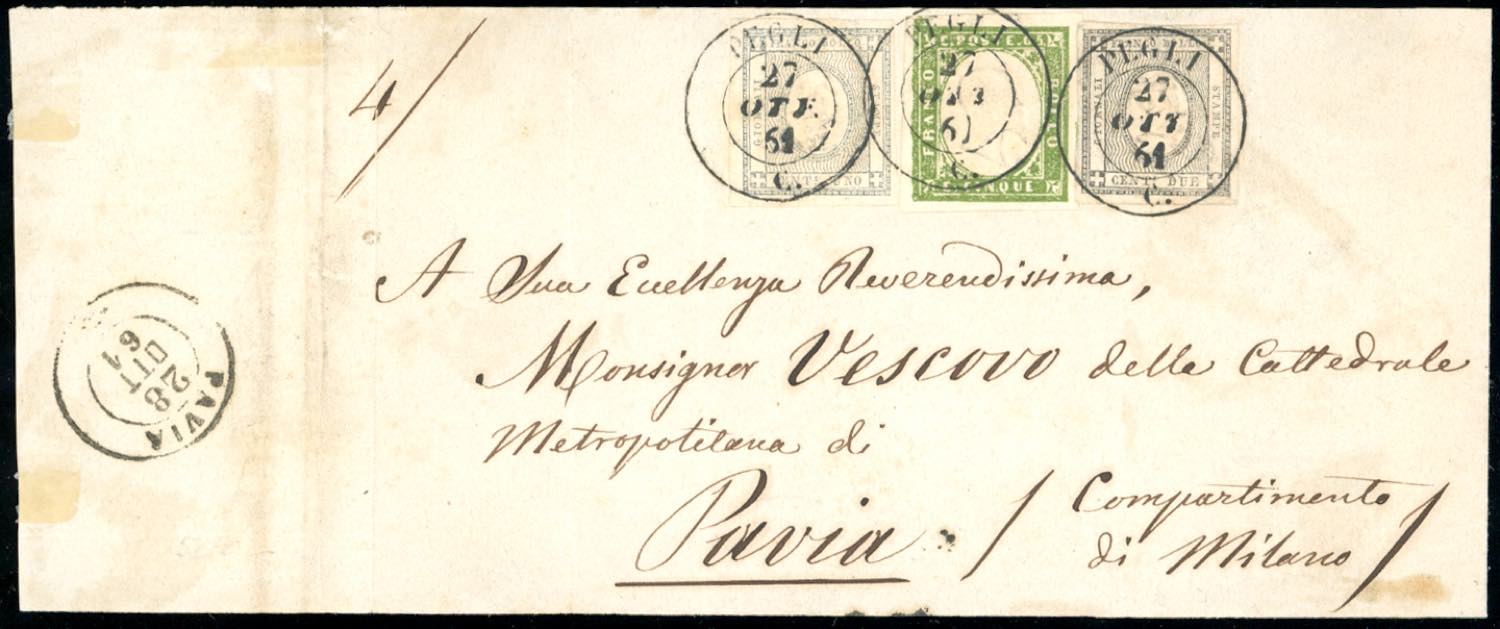 4/
PEGLI
27
OTT.
61
C.
GIORNALI
CENT. UNO
PEGLI
27
OTT
61
C.
C. POSTE. C. 5
FRANCO
BOLLO
CINQUE
PEGLI
27
OTT
61
C.
GIORNALI
STAMPE
CENT. DUE
A Sua Eccellenza Reverendissima,
Monsignor Vescovo della Cattedrale
Metropotilana di
Pavia. / Compartimento
di Milano /
PAVIA
28
OTT
61